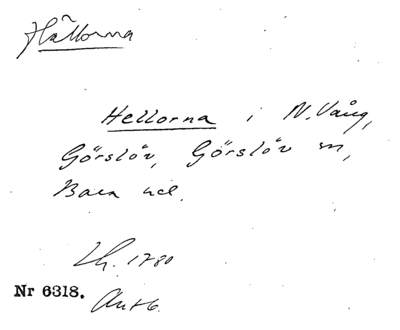 Hällorna
Hellorna i N. Vång,
Görslöv, Görslöv sn,
Bara hd.
Lh. 1780
Nr 6318.